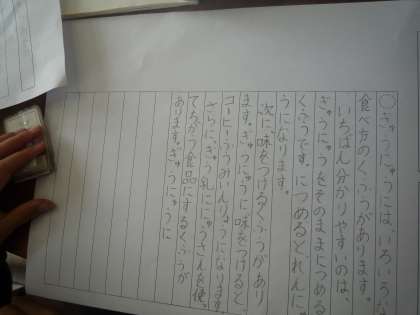 ○ぎゅうにゅうには、いろいろな
食べ方のくふうがあります。
いちばん分かりやすいのは、
ぎゅうにゅうをそのままにつめる
くふうです。につめるとれんに
うになります。
次に、味をつけるくふうがあり
ます。ぎゅうにゅうに味をつけると、
コーヒーふうみいんりょうになります
さらに、ぎゅう乳ににゅうさんきんを使っ
てちがう食品にするくふうが
あります。ぎゅうにゅうに